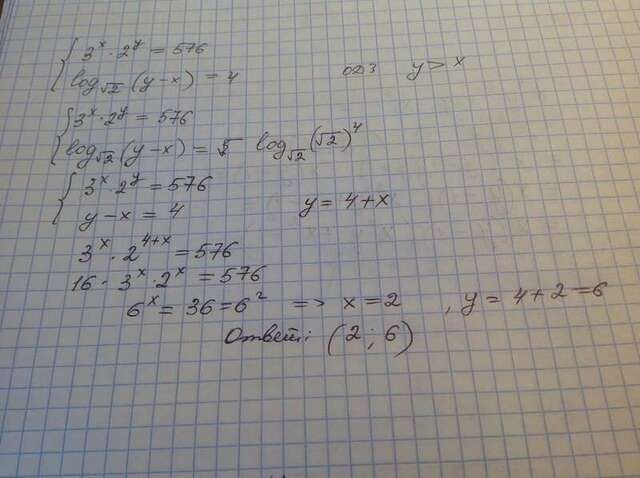 { 3^x · 2^y = 576
{ log_√2 (y − x) = 4    ОДЗ    y > x
{ 3^x · 2^y = 576
{ log_√2 (y − x) = log_√2 (√2)^4
{ 3^x · 2^y = 576
{ y − x = 4    y = 4 + x
3^x · 2^(4+x) = 576
16 · 3^x · 2^x = 576
6^x = 36 = 6^2 => x = 2 , y = 4 + 2 = 6
Ответ: (2 ; 6)